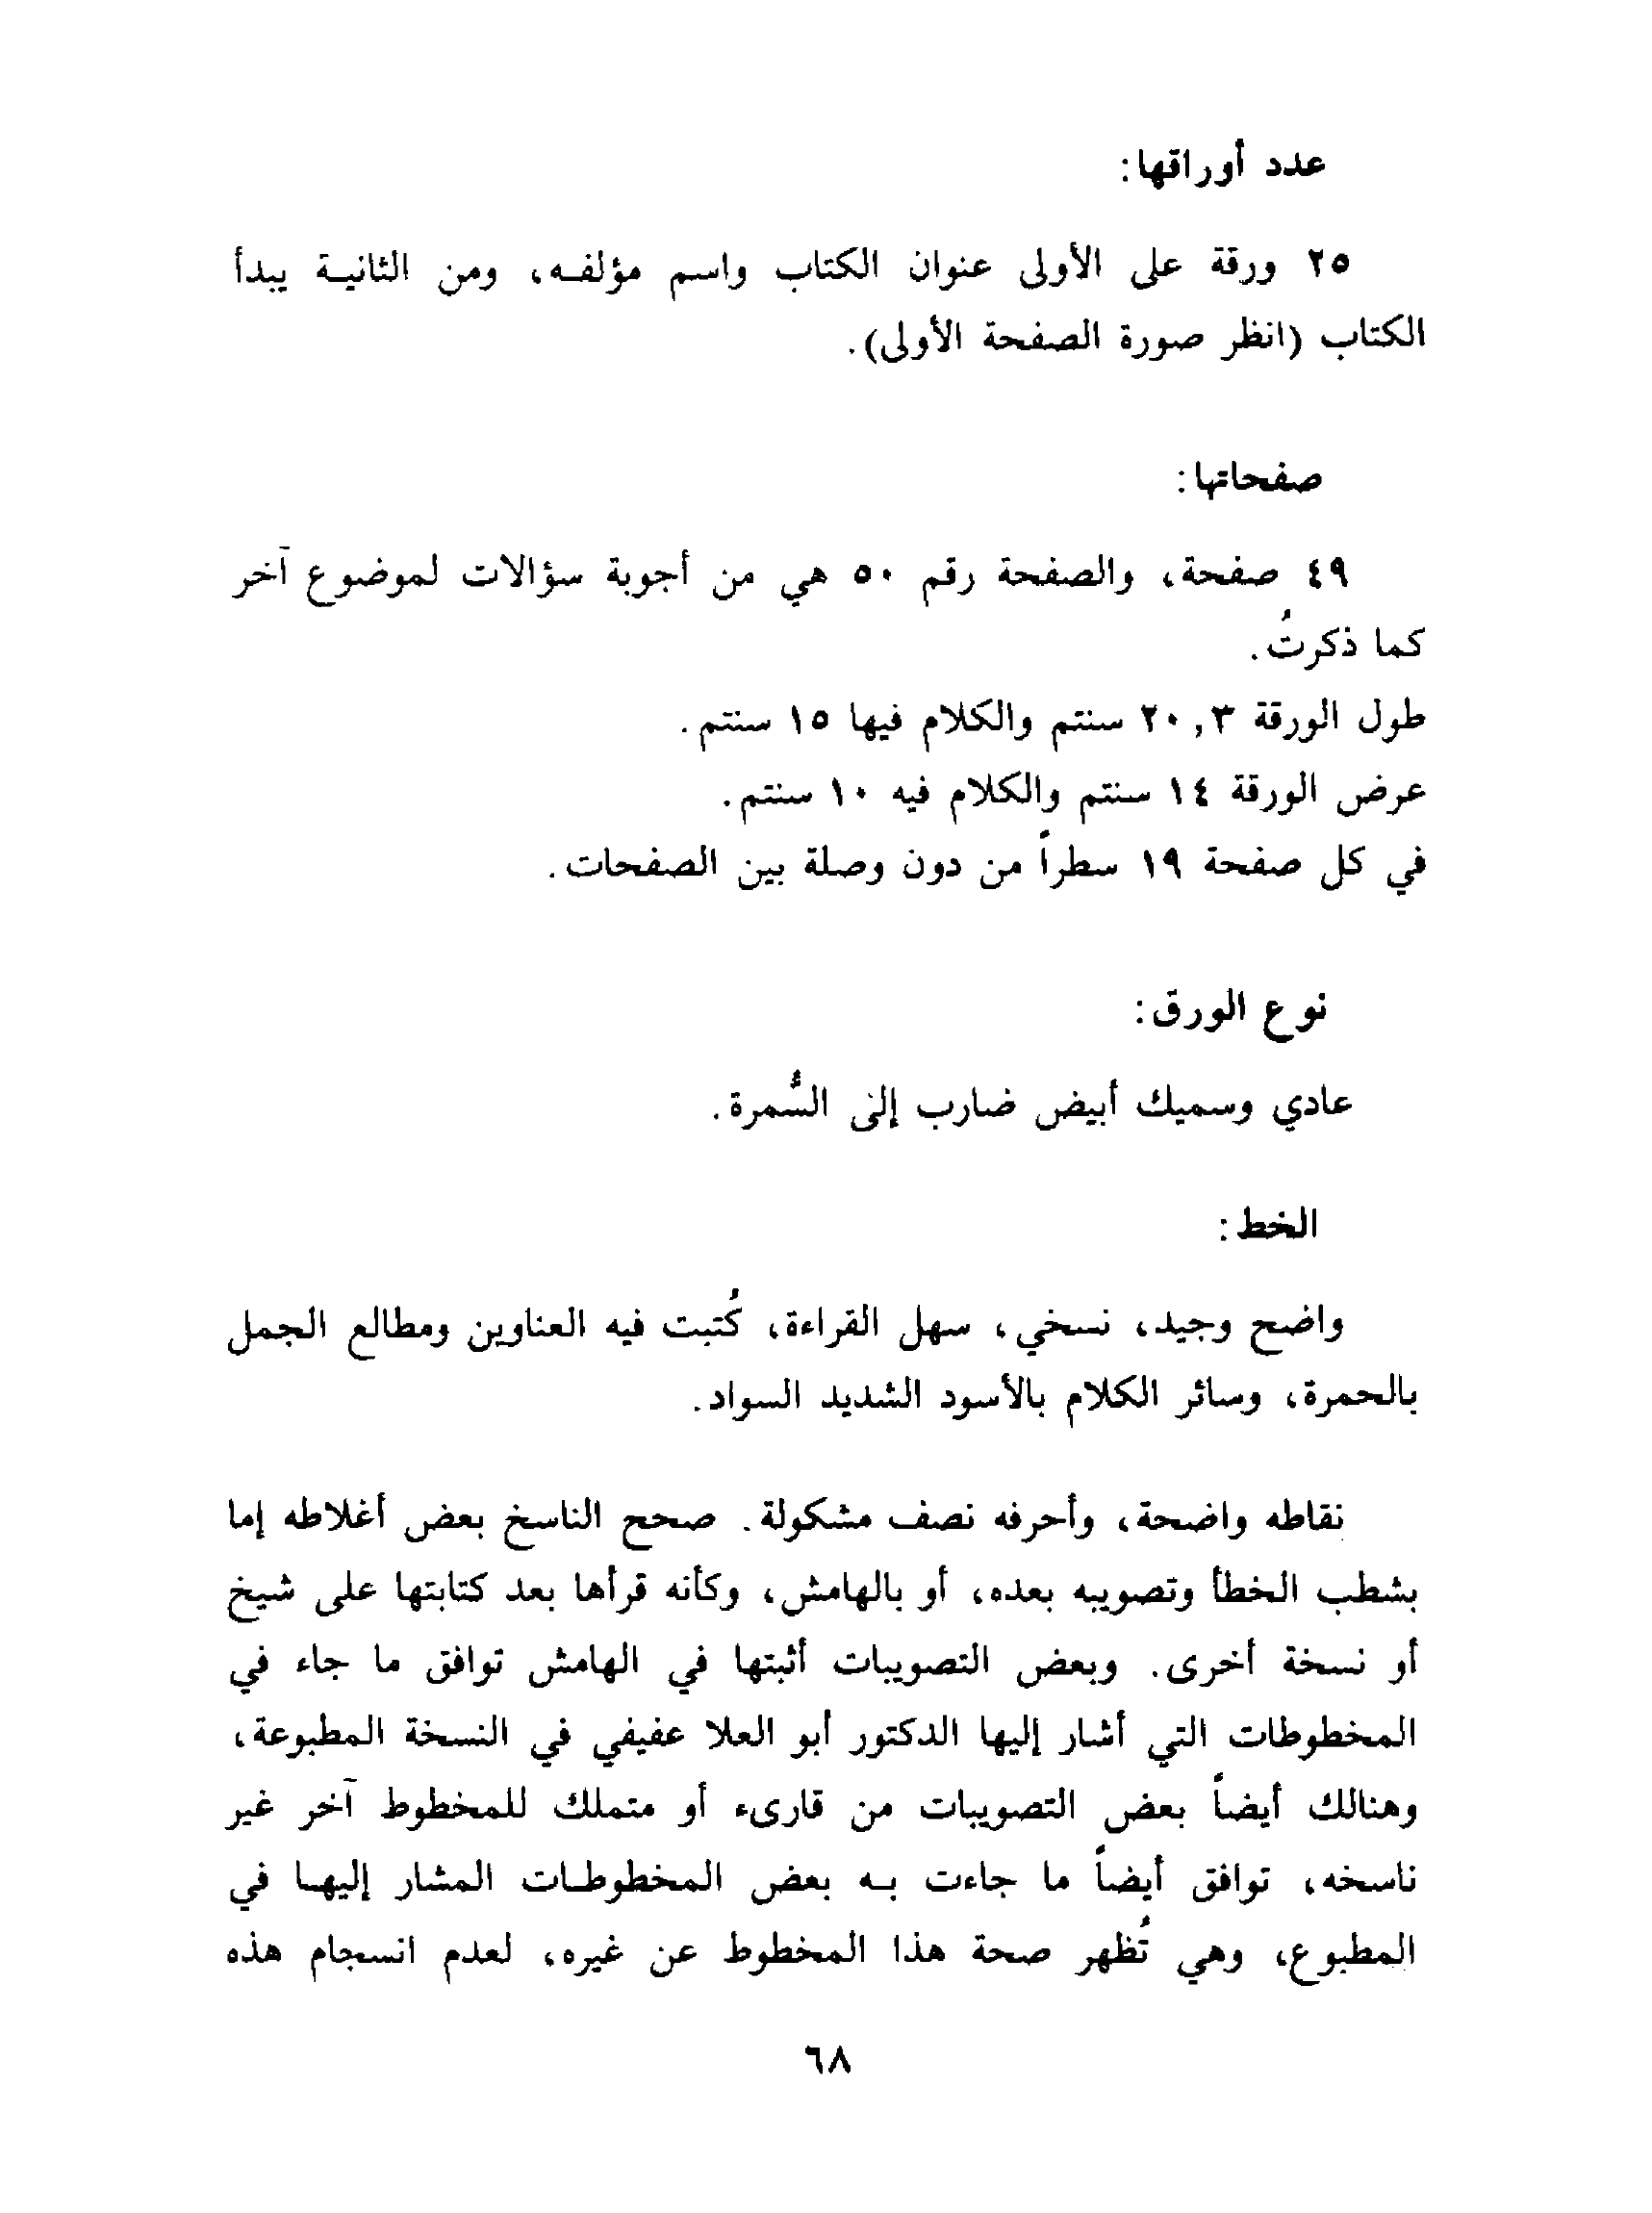 عدد أوراقها:
٢٥ ورقة على الأولى عنوان الكتاب واسم مؤلفه، ومن الثانية يبدأ
الكتاب (انظر صورة الصفحة الأولى).
صفحاتها:
٤٩ صفحة، والصفحة رقم ٥٠ هي من أجوبة سؤالات لموضوع آخر
كما ذكرتُ.
طول الورقة ٢٠,٣ سنتم والكلام فيها ١٥ سنتم.
عرض الورقة ١٤ سنتم والكلام فيه ١٠ سنتم.
في كل صفحة ١٩ سطراً من دون وصلة بين الصفحات.
نوع الورق:
عادي وسميك أبيض ضارب إلى السُّمرة.
الخط:
واضح وجيد، نسخي، سهل القراءة، كُتبت فيه العناوين ومطالع الجمل
بالحمرة، وسائر الكلام بالأسود الشديد السواد.
نقاطه واضحة، وأحرفه نصف مشكولة. صحح الناسخ بعض أغلاطه إما
بشطب الخطأ وتصويبه بعده، أو بالهامش، وكأنه قرأها بعد كتابتها على شيخ
أو نسخة أخرى. وبعض التصويبات أثبتها في الهامش توافق ما جاء في
المخطوطات التي أشار إليها الدكتور أبو العلا عفيفي في النسخة المطبوعة،
وهنالك أيضاً بعض التصويبات من قارىء أو متملك للمخطوط آخر غير
ناسخه، توافق أيضاً ما جاءت به بعض المخطوطات المشار إليها في
المطبوع، وهي تُظهر صحة هذا المخطوط عن غيره، لعدم انسجام هذه
٦٨